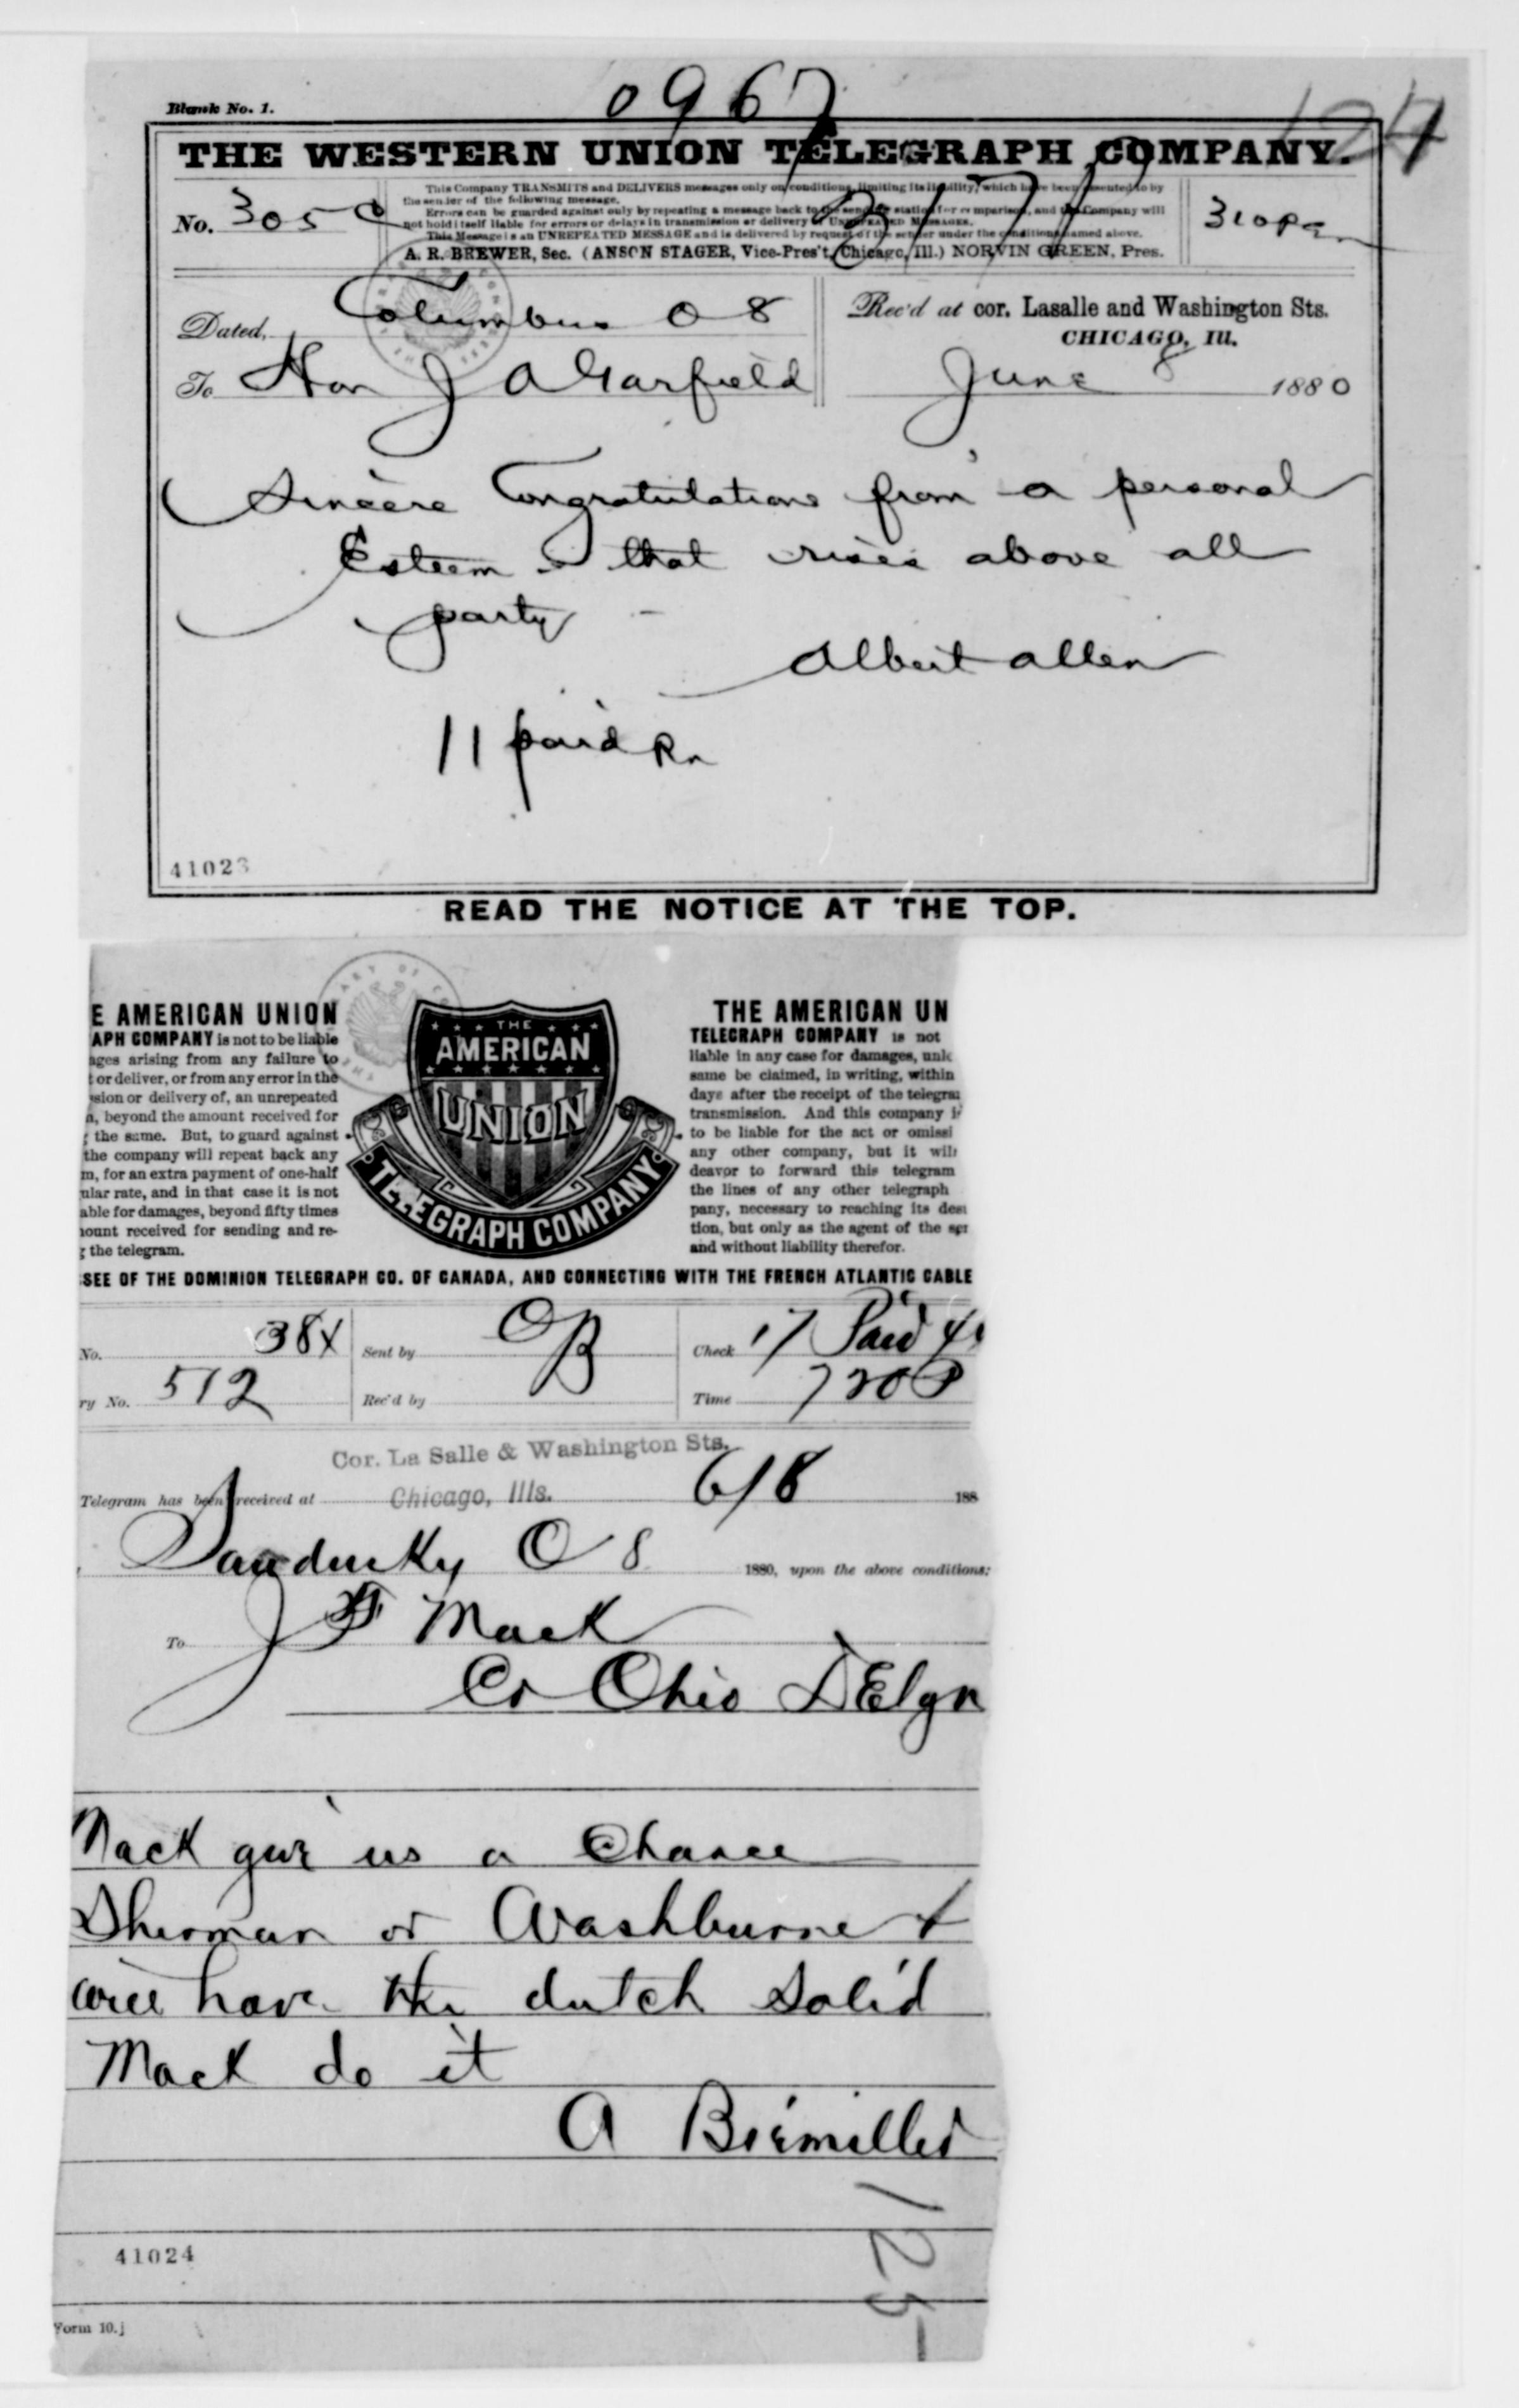 0967
124
Blank No. 1.
THE WESTERN UNION TELEGRAPH COMPANY.
No. 305
This Company TRANSMITS and DELIVERS messages only on conditions, limiting its liability, which have been assented to by
the sender of the following message.
Errors can be guarded against only by repeating a message back to the sending station for comparison, and the Company will
not hold itself liable for errors or delays in transmission or delivery of UNREPEATED MESSAGES.
This Message is an UNREPEATED MESSAGE and is delivered by request of the sender under the conditions named above.
A. R. BREWER, Sec. (ANSON STAGER, Vice-Pres't, Chicago, Ill.) NORVIN GREEN, Pres.
Dated, Columbus O 8
Rec'd at cor. Lasalle and Washington Sts.
CHICAGO, Ill.
To Hon J A Garfield
June 8 1880
Sincere Congratulations from a personal
Esteem that rises above all
party
Albert Allen
11 paid
41023
READ THE NOTICE AT THE TOP.
E AMERICAN UNION
APH COMPANY is not to be liable
ages arising from any failure to
t or deliver, or from any error in the
sion or delivery of, an unrepeated
, beyond the amount received for
the same. But, to guard against
the company will repeat back any
m, for an extra payment of one-half
ular rate, and in that case it is not
able for damages, beyond fifty times
ount received for sending and re-
the telegram.
THE
AMERICAN
UNION
TELEGRAPH COMPANY
THE AMERICAN UN
TELEGRAPH COMPANY is not
liable in any case for damages, unle
same be claimed, in writing, within
days after the receipt of the telegra
transmission. And this company i
to be liable for the act or omissi
any other company, but it will
deavor to forward this telegram
the lines of any other telegraph
pany, necessary to reaching its des
tion, but only as the agent of the
and without liability therefor.
SEE OF THE DOMINION TELEGRAPH CO. OF CANADA, AND CONNECTING WITH THE FRENCH ATLANTIC CABLE
No. 38x
Sent by OB
Check 17 Paid
ry No. 512
Rec'd by
Time 720 P
Cor. La Salle & Washington Sts.
Telegram has been received at Chicago, Ills. 6/8 188
Sandusky O 8 1880, upon the above conditions:
To J Mack
Cr Ohio DElgn
Mack give us a Chance
Sherman or Washburne &
will have the dutch Solid
Mack do it
A Biemiller
125
41024
Form 10.]